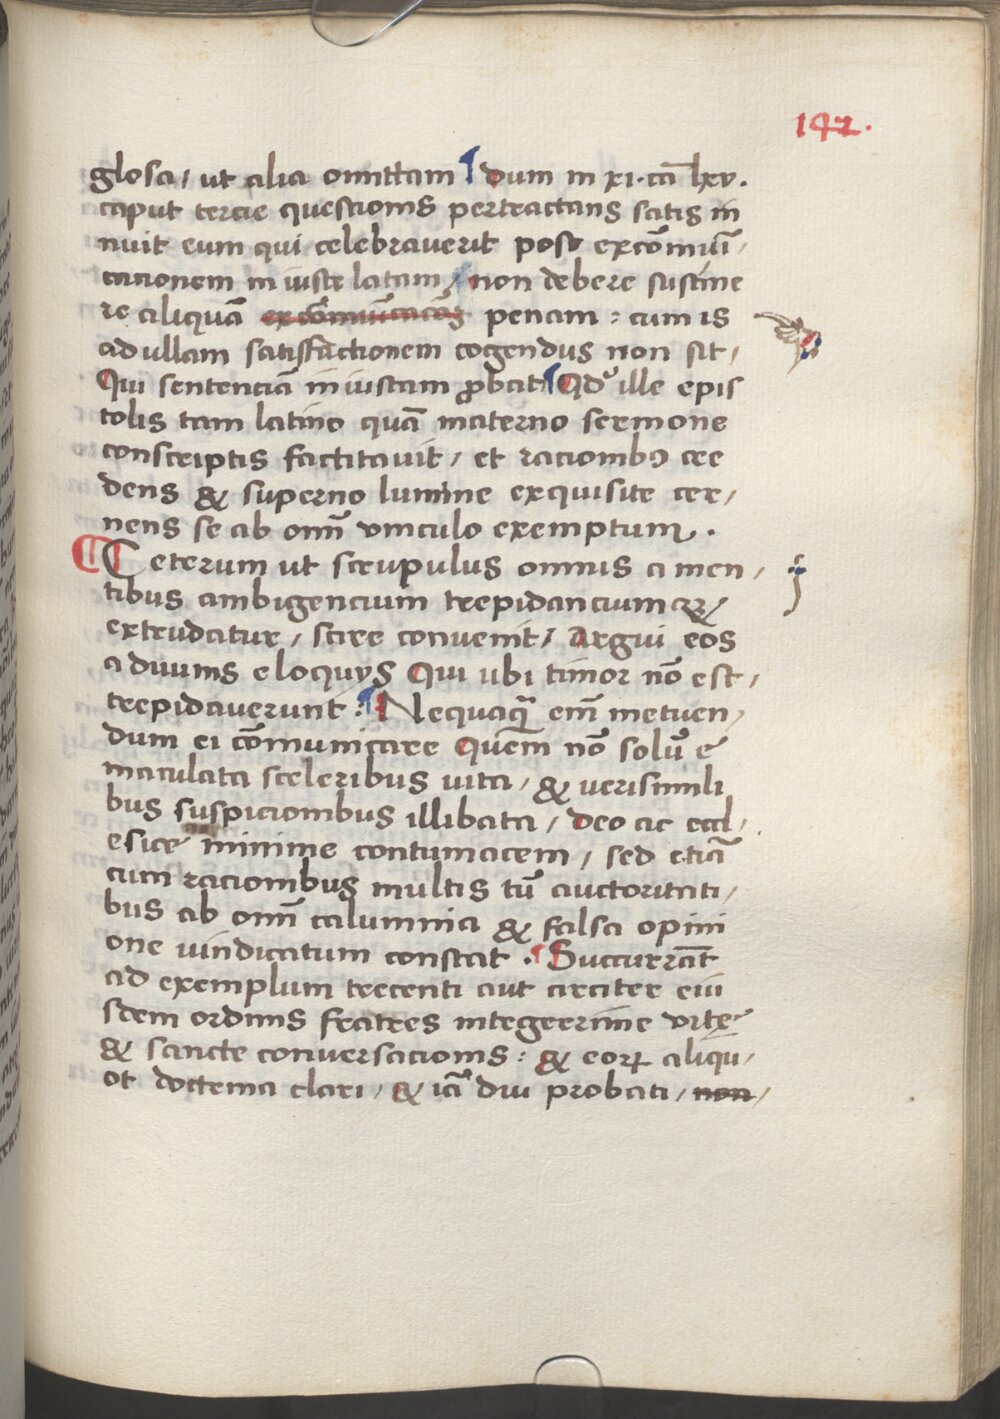 147.
glosa / ut alia omittam ¶ dum in xi. cā lxv.
caput tercie questionis pertractans satis in
nuit eum qui celebraverit post excōmuī /
cationem iniuste latam / non debere sustine
re aliquā excōmunicacōis penam : cum is
ad ullam satisfactionem cogendus non sit /
Qui sentenciā iniustam ꝓbat ¶ Qd' ille epis
tolis tam latino quā materno sermone
conscriptis factitavit / et racionibꝰ cre
dens & superno lumine exquisite cer /
nens se ab omī vinculo exemptum .
¶ Ceterum ut scrupulus omnis a men /
tibus ambigencium trepidanciumqꝫ /
extrudatur / scire convenit / Argui eos
a divinis eloquys Qui ubi timor nō est /
trepidaverunt : ¶ Nequaqͣ enī metuen /
dum ei cōmunicare quem nō solū e
maculata sceleribus vita / & verisimili
bus suspicionibus illibata / deo ac eccl /
esice minime contumacem / sed etiā
cum racionibus multis tū auctoritati /
bus ab omī calumnia & falsa opini
one vindicatum constat . ¶ Succurrāt
ad exemplum trecenti aut circiter eiu
sdem ordinis fratres integerrime vite
& sancte conversacionis : & eoꝝ aliqū /
ot doctrina clari / & iā diu probati / non /